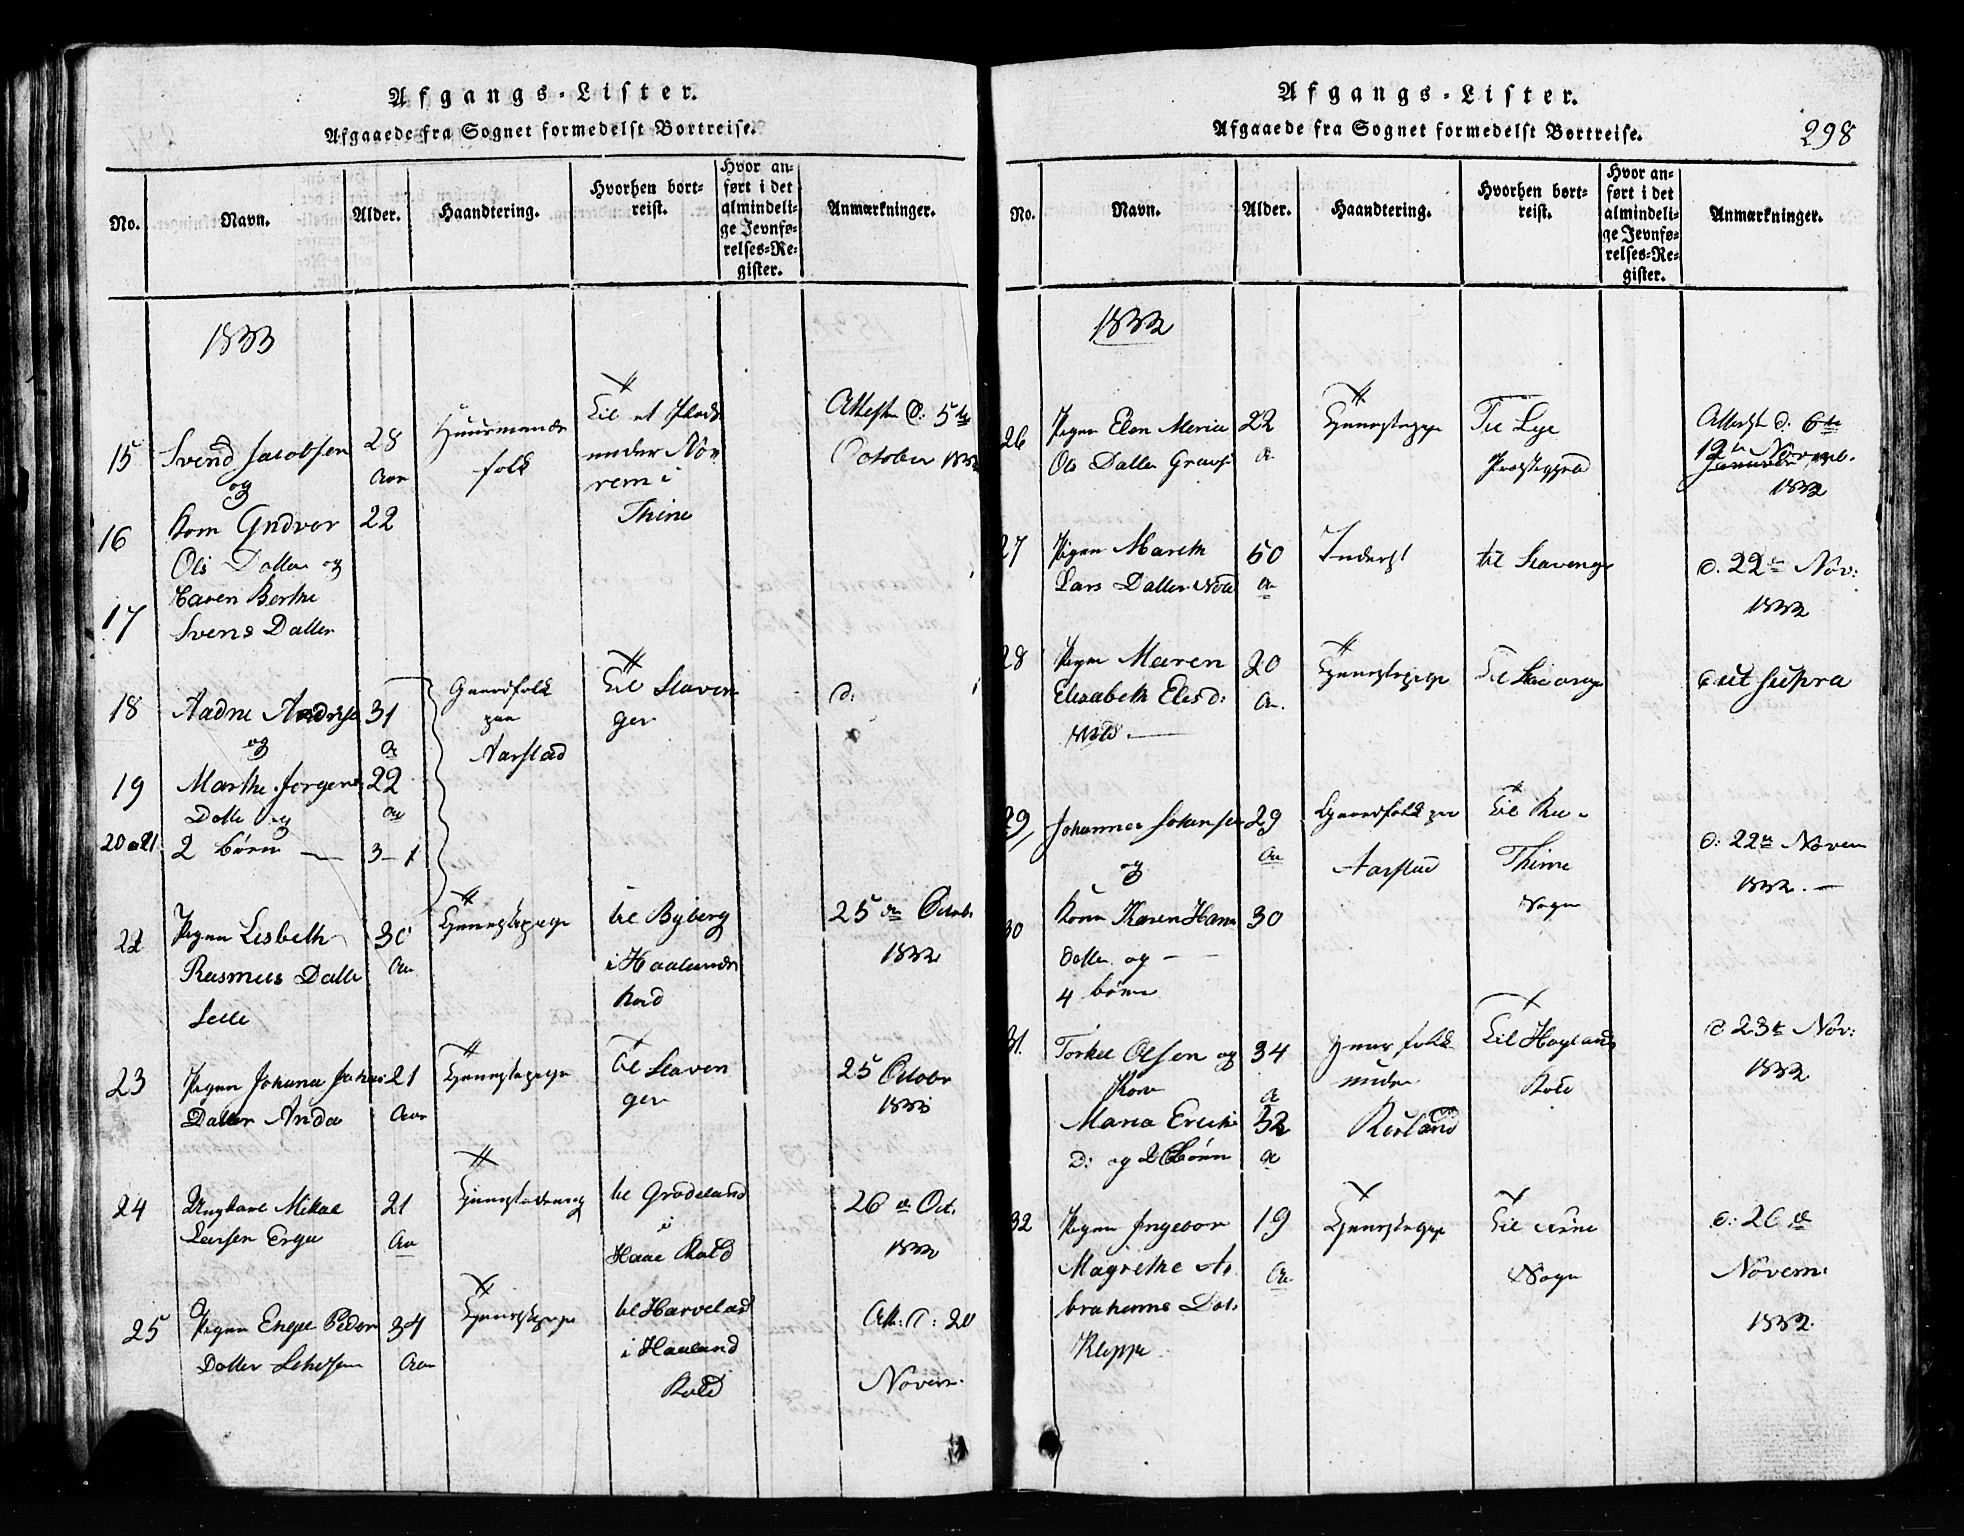 Afgangs-Lister.
Afgaaede fra Sognet formedelst Bortreise.
No.
Navn.
Alder.
Haandtering.
Hvorhen bort-
reist.
Hvor an-
ført i det
almindeli-
ge Jevnfø-
relses-Re-
gister.
Anmærkninger.
1833
15
Svend Jacobsen
og
28
Aar
Huusmands
folk
til et Plads
under
rem i
Thime
Attest d: 5te
October 1832
16
Kone Gudvor
Ols Datter og
22
17
Caren Berthe
Svens Datter
18
Aadne
og
31
Gaardfolk
paa
Aarstad
til Stavan
ger
d:
19
Marthe Jørgens
Datter og
22
20 a 21
2 børn
3-1
22
Pigen Lisbeth
Rasmus Datter
Selle
30
Aar
Tjenestepige
til Byberg
i Haalands
Kald
25de Octob.
1832
23
Pigen Johana Johns
Datter Anda
21
Aar
Tjenestepige
til Staven
ger
25 Octobr
1833
24
Ungkarl Mikal
Larsen Erga
21
Aar
til Grødeland
i
Haae Kald
26de Oct.
1832
25
Pigen Engel Peder
Datter
34
Aar
Tjenestepige
til
i Haaland
Kald
Att: d: 20
Novem.
Afgangs-Lister.
Afgaaede fra Sognet formedelst Bortreise.
298
No.
Navn.
Alder.
Haandtering.
Hvorhen bort-
reist.
Hvor an-
ført i det
almindeli-
ge Jevnfø-
relses-Re-
gister.
Anmærkninger.
1832
26
Pigen Elen Maria
Ols Datter
22
Tjenestepige
Til Lye
Præstegjeld
Attest d. 6te
12te Novemb.
1832
27
Pigen Mareth
Lars Datter
60
Inderst
til Stavanger
d. 22de Nov:
1832
28
Pigen Maren
Elisabeth Elesd:
20
Tjenestepige
til Stavanger
d ut supra
29
Johannes Johansen
og
29
Gaardfolk paa
Aarstad
til
Thime
Sogn
d: 22de Novem
1832.
30
Kone Karen Hans
Datter og
4 børn
30
31.
Torkel Olsen og
Kone
Maria
D: og 2 Børn
34
32
under
til Høylands
Kald
d 23de Nov:
1832
32
Pigen Ingebor
Magrethe A
brahams Dat.
Kleppe
19
Tjenestepige
til
Sogn
d: 26de
Novem:
1832.